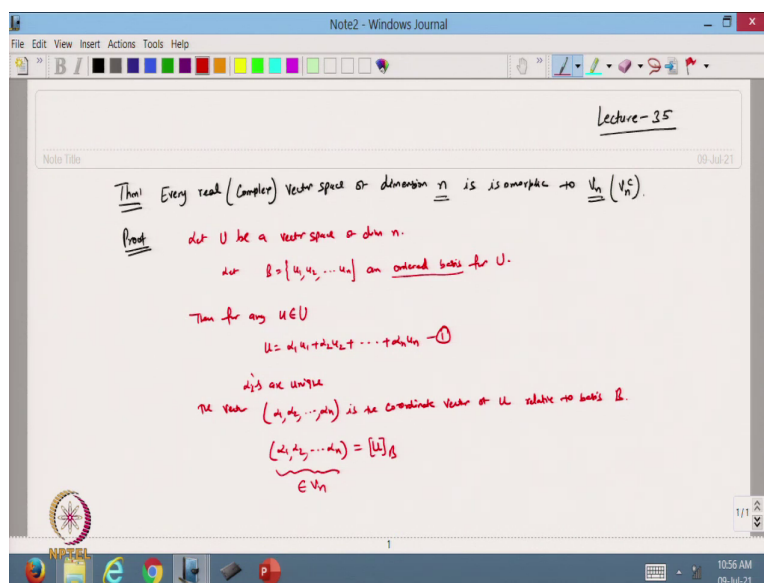 Note2 - Windows Journal
File Edit View Insert Actions Tools Help
B I
Lecture-35
Note Title
09-Jul-21
Thm1 Every real (Complex) Vector space of dimension n is isomorphic to Vn (Vn^c).
Proof Let U be a vector space of dim n.
Let B = {u1, u2, ... un} an ordered basis for U.
Then for any u∈U
u = α1u1+α2u2+ ... +αnun -①
αi's are unique
The vector (α1, α2, ..., αn) is the coordinate vector of u relative to basis B.
(α1, α2, ... αn) = [u]B
∈ Vn
1/1
1
NPTEL
10:56 AM
09-Jul-21